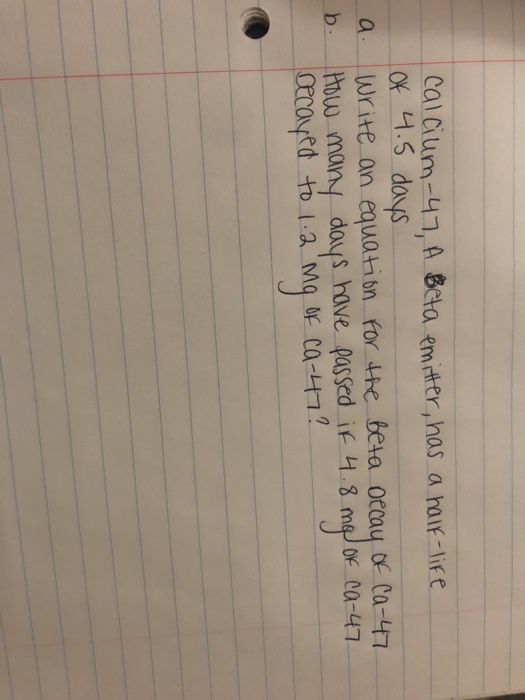 Calcium-47, A Beta emitter, has a half-life
of 4.5 days
a. Write an equation for the beta Decay of Ca-47
b. How many days have passed if 4.8 mg of Ca-47
Decayed to 1.2 Mg of Ca-47?